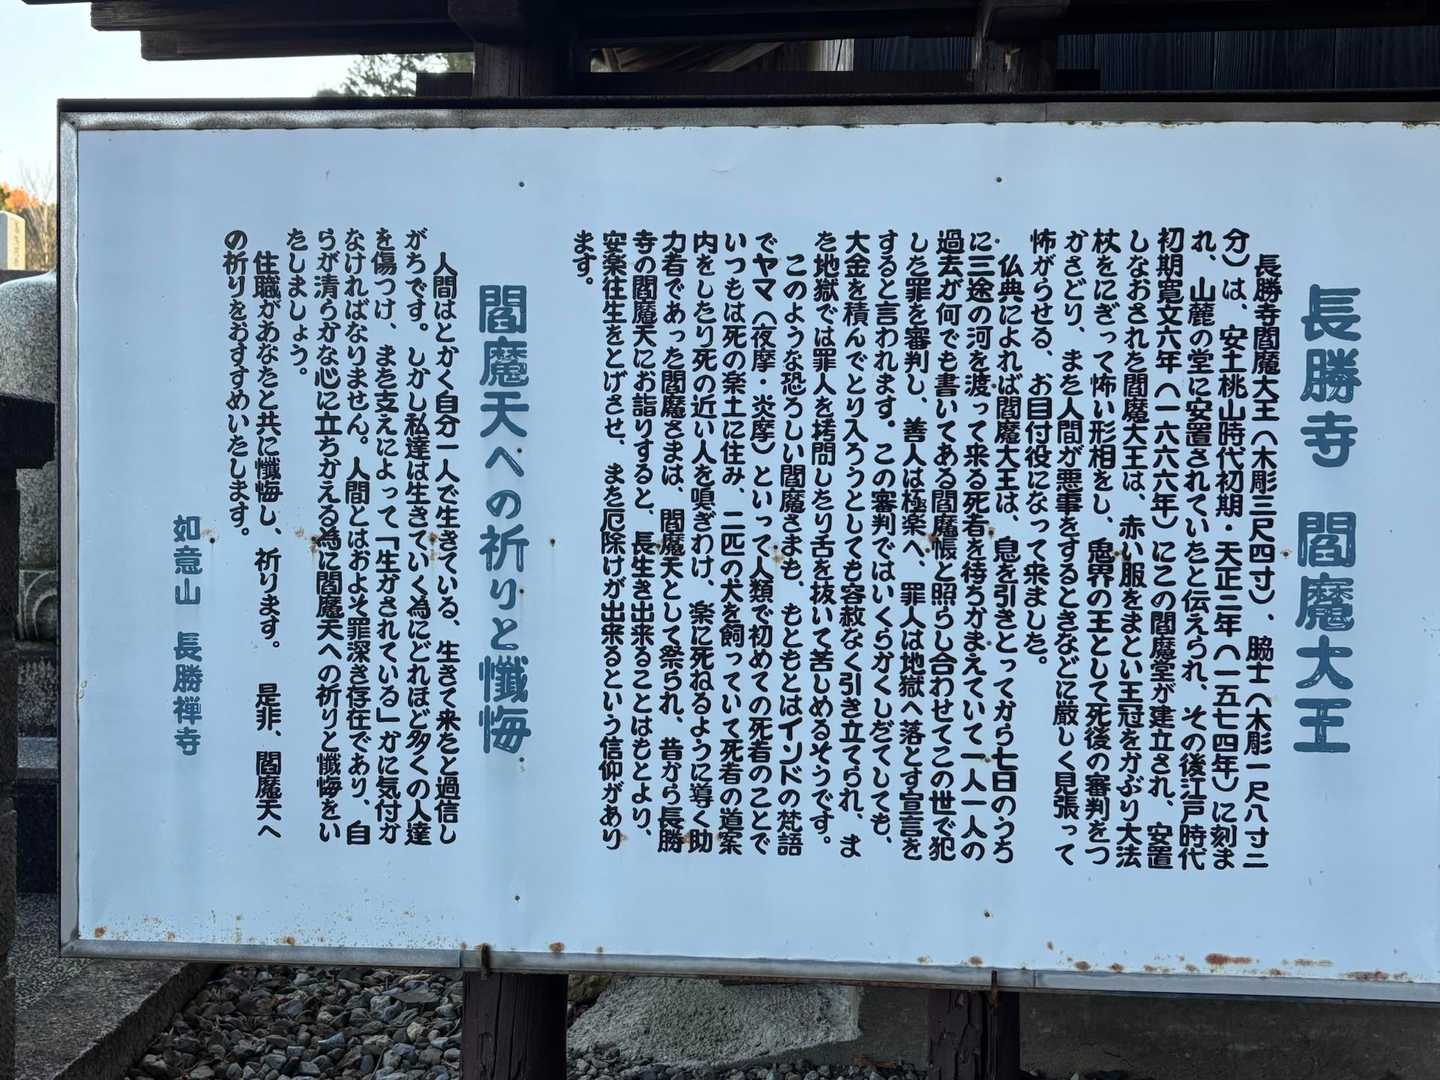 長勝寺 閻魔大王
長勝寺閻魔大王（木彫三尺四寸）、脇士（木彫一尺八寸二
分）は、安土桃山時代初期・天正二年（一五七四年）に刻ま
れ、山麓の堂に安置されていたと伝えられ、その後江戸時代
初期寛文六年（一六六六年）にこの閻魔堂が建立され、安置
しなおされた閻魔大王は、赤い服をまとい王冠をかぶり大法
杖をにぎって怖い形相をし、冥界の王として死後の審判をつ
かさどり、また人間が悪事をするときなどに厳しく見張って
怖がらせる、お目付役になって来ました。
仏典によれば閻魔大王は、息を引きとってから七日のうち
に三途の河を渡って来る死者を待ちかまえていて一人一人の
過去が何でも書いてある閻魔帳と照らし合わせてこの世で犯
した罪を審判し、善人は極楽へ、罪人は地獄へ落とす宣言を
すると言われます。この審判ではいくらかくしだてしても、
大金を積んでとり入ろうとしても容赦なく引き立てられ、ま
た地獄では罪人を拷問したり舌を抜いて苦しめるそうです。
このような恐ろしい閻魔さまも、もともとはインドの梵語
でヤマ（夜摩・炎摩）といって人類で初めての死者のことで
いつもは死の楽土に住み、二匹の犬を飼っていて死者の道案
内をしたり死の近い人を嗅ぎわけ、楽に死ねるように導く助
力者であった閻魔さまは、閻魔天として祭られ、昔から長勝
寺の閻魔天にお詣りすると、長生き出来ることはもとより、
安楽往生をとげさせ、また厄除けが出来るという信仰があり
ます。
閻魔天への祈りと懺悔
人間はとかく自分一人で生きている、生きて来たと過信し
がちです。しかし私達は生きていく為にどれほど多くの人達
を傷つけ、また支えによって「生かされている」かに気付か
なければなりません。人間とはおよそ罪深き存在であり、自
らが清らかな心に立ちかえる為に閻魔天への祈りと懺悔をい
たしましょう。
住職があなたと共に懺悔し、祈ります。 是非、閻魔天へ
の祈りをおすすめいたします。
如意山 長勝禅寺